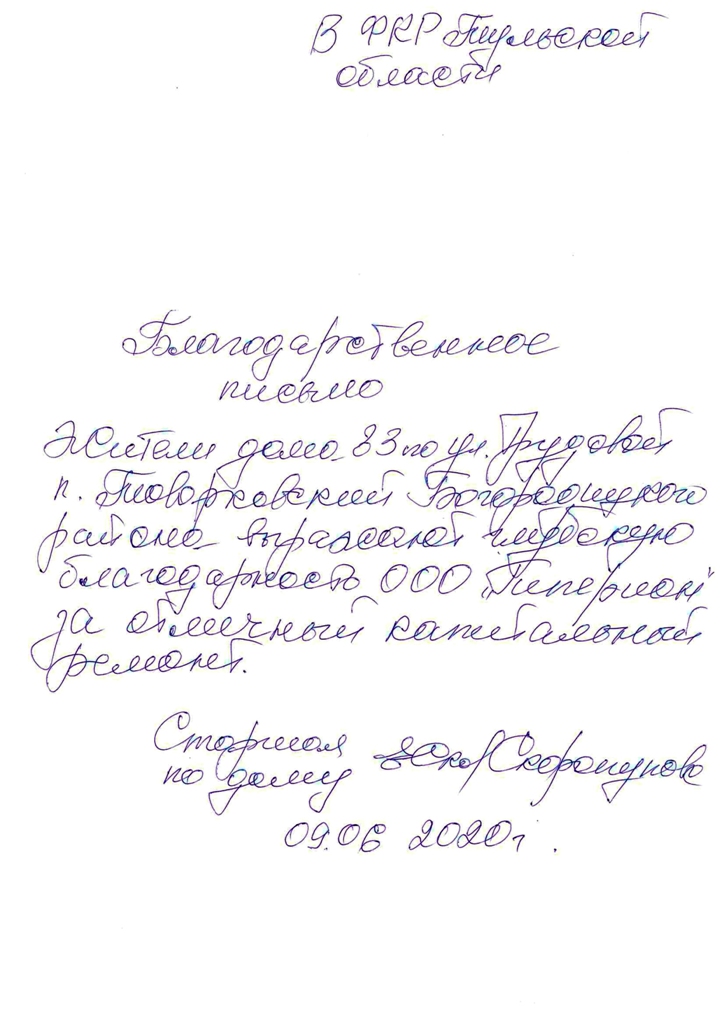 В ФКР Тульской
области
Благодарственное
письмо
Жители дома 33 по ул. Трудовой
п. Товарковский Богородицкого
района выражают глубокую
благодарность ООО „Гиперион"
за отличный капитальный
ремонт.
Старшая
по дому
09.06 2020г.